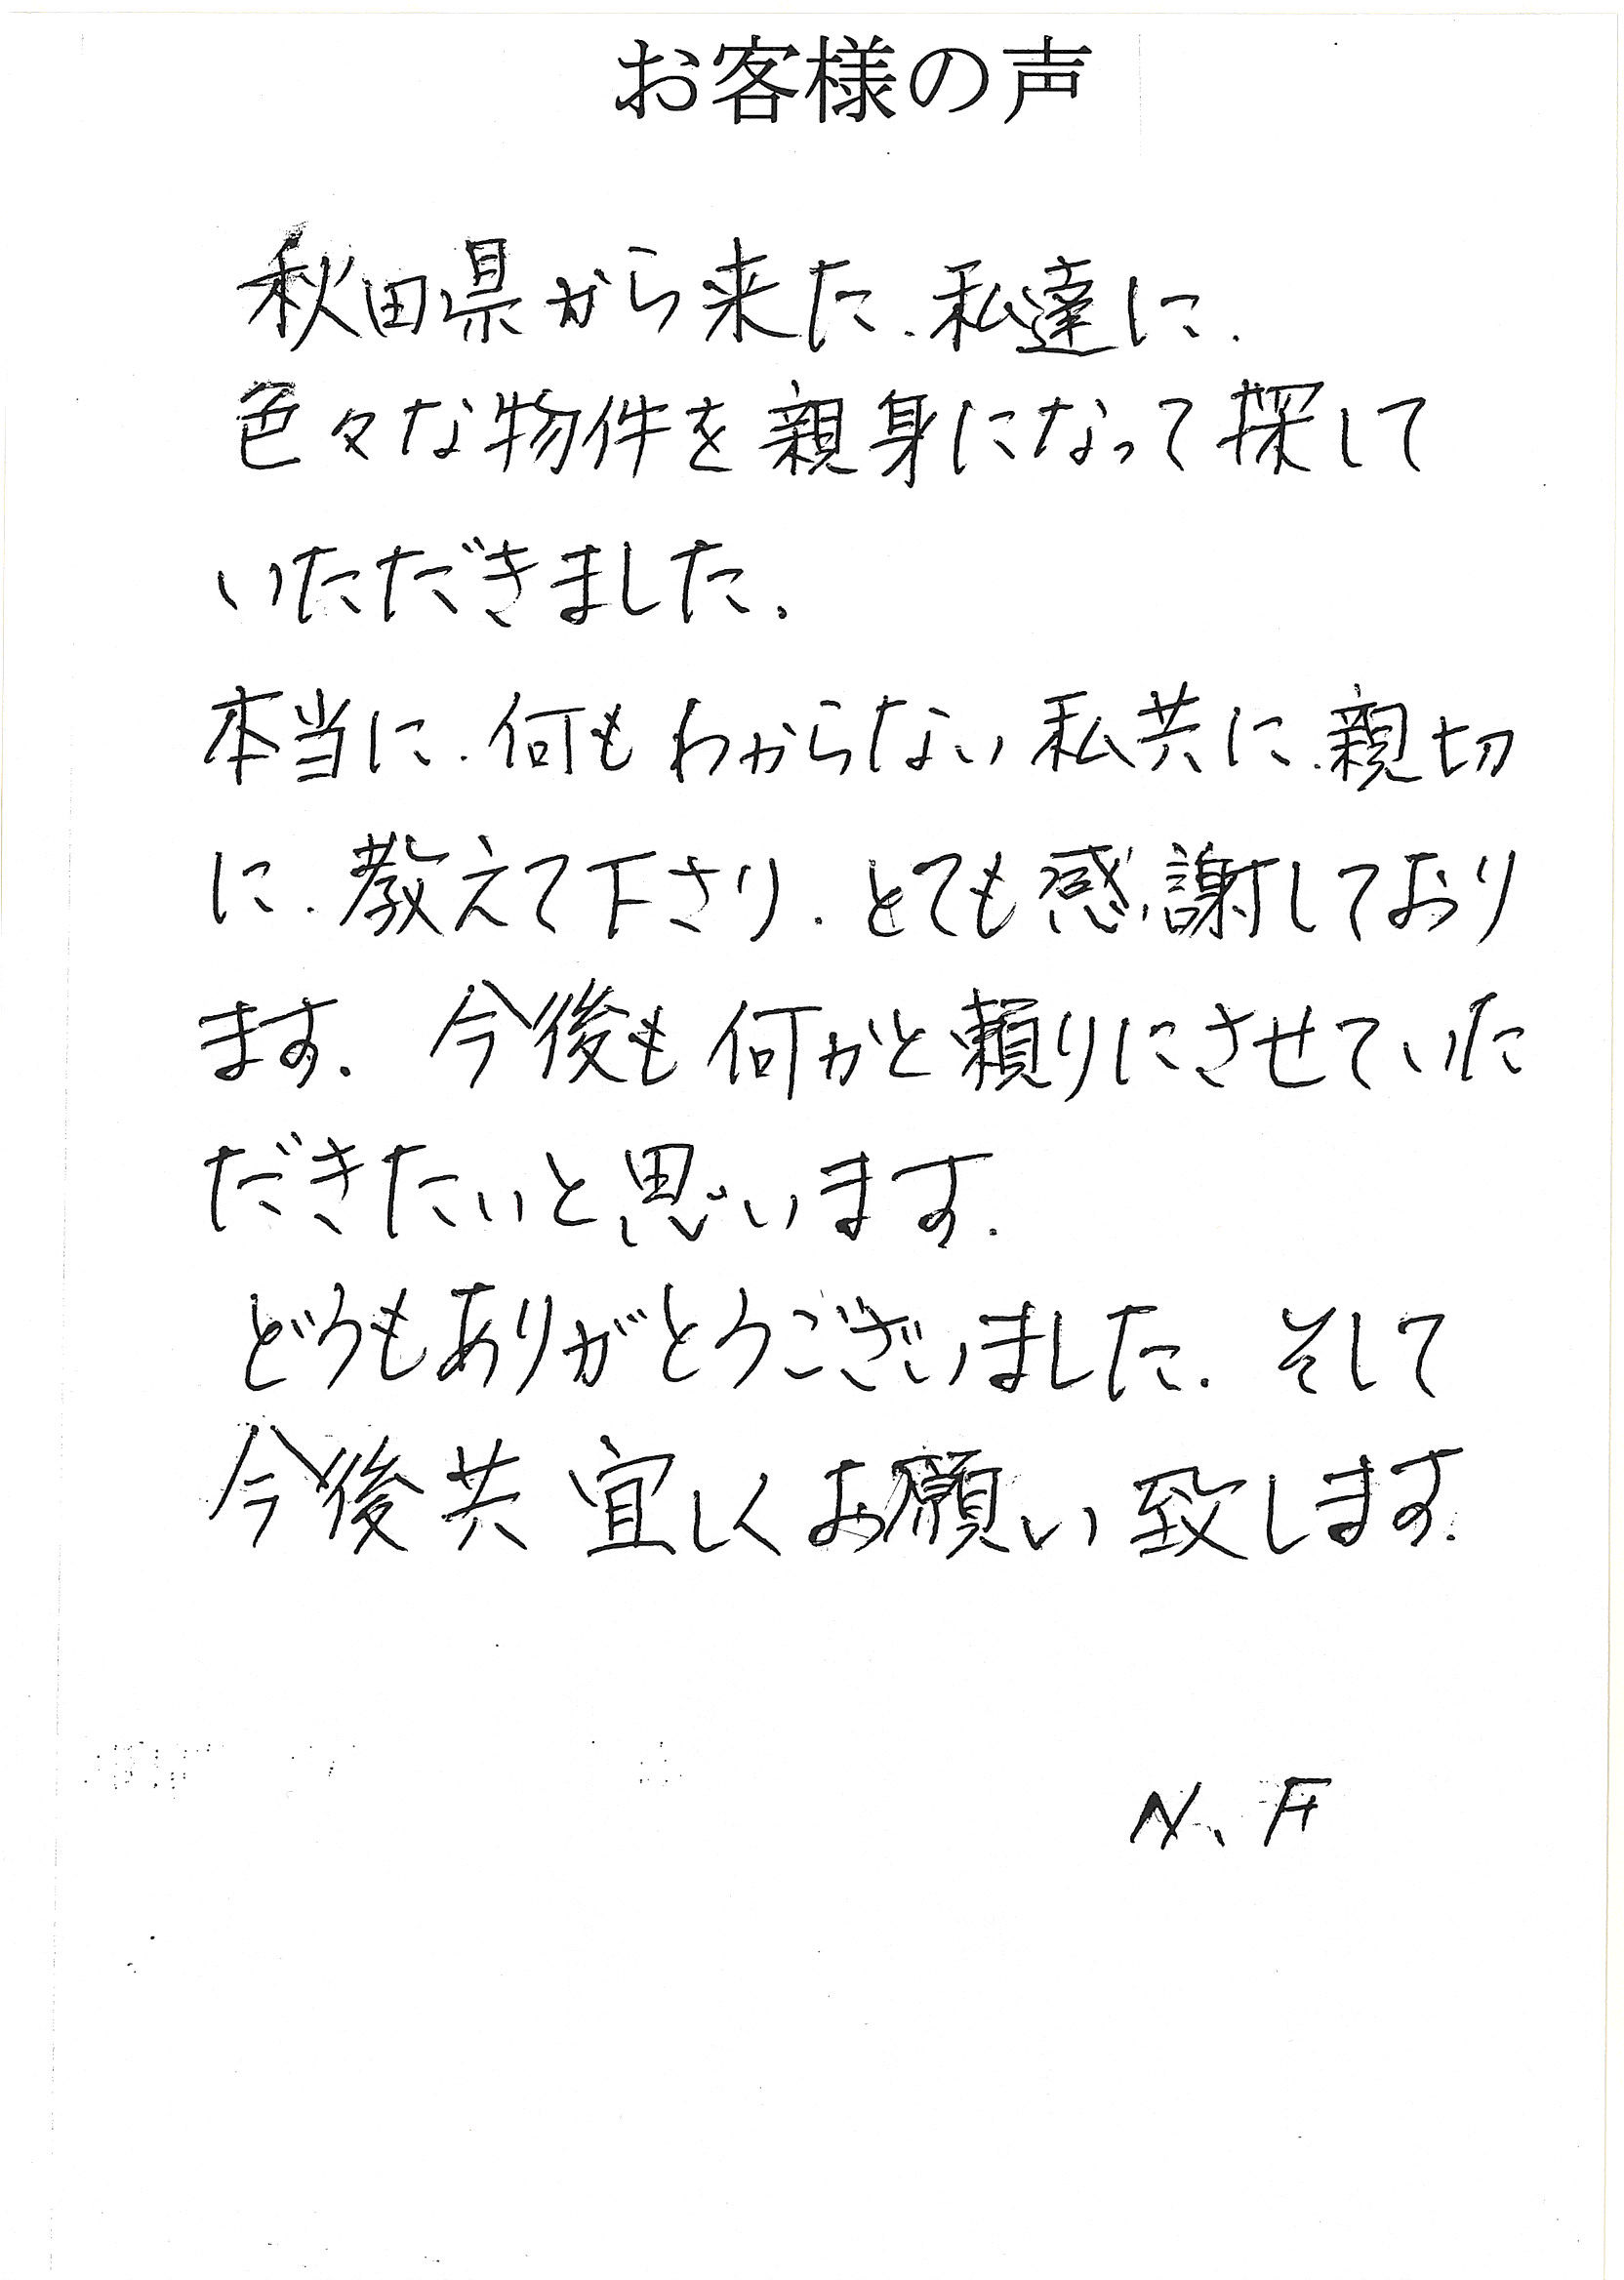 お客様の声
秋田県から来た、私達に、
色々な物件を親身になって探して
いただきました。
本当に、何もわからない私共に、親切
に、教えて下さり、とても感謝しており
ます。今後も何かと頼りにさせていた
だきたいと思います。
どうもありがとうございました。そして
今後共宜しくお願い致します。
N、F